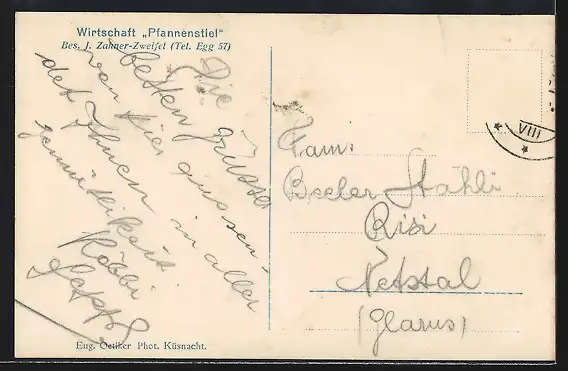 Wirtschaft „Pfannenstiel"
Bes. J. Zahner-Zweifel (Tel. Egg 57)
Die
besten grüsse
von hier aus sen-
det Ihnen in aller
gemütlikeit.
Röbbi
Seppl
Fam:
Beeler-Stähli
Risi
Netstal
(Glarus)
VIII
Eug. Oetiker Phot. Küsnacht.